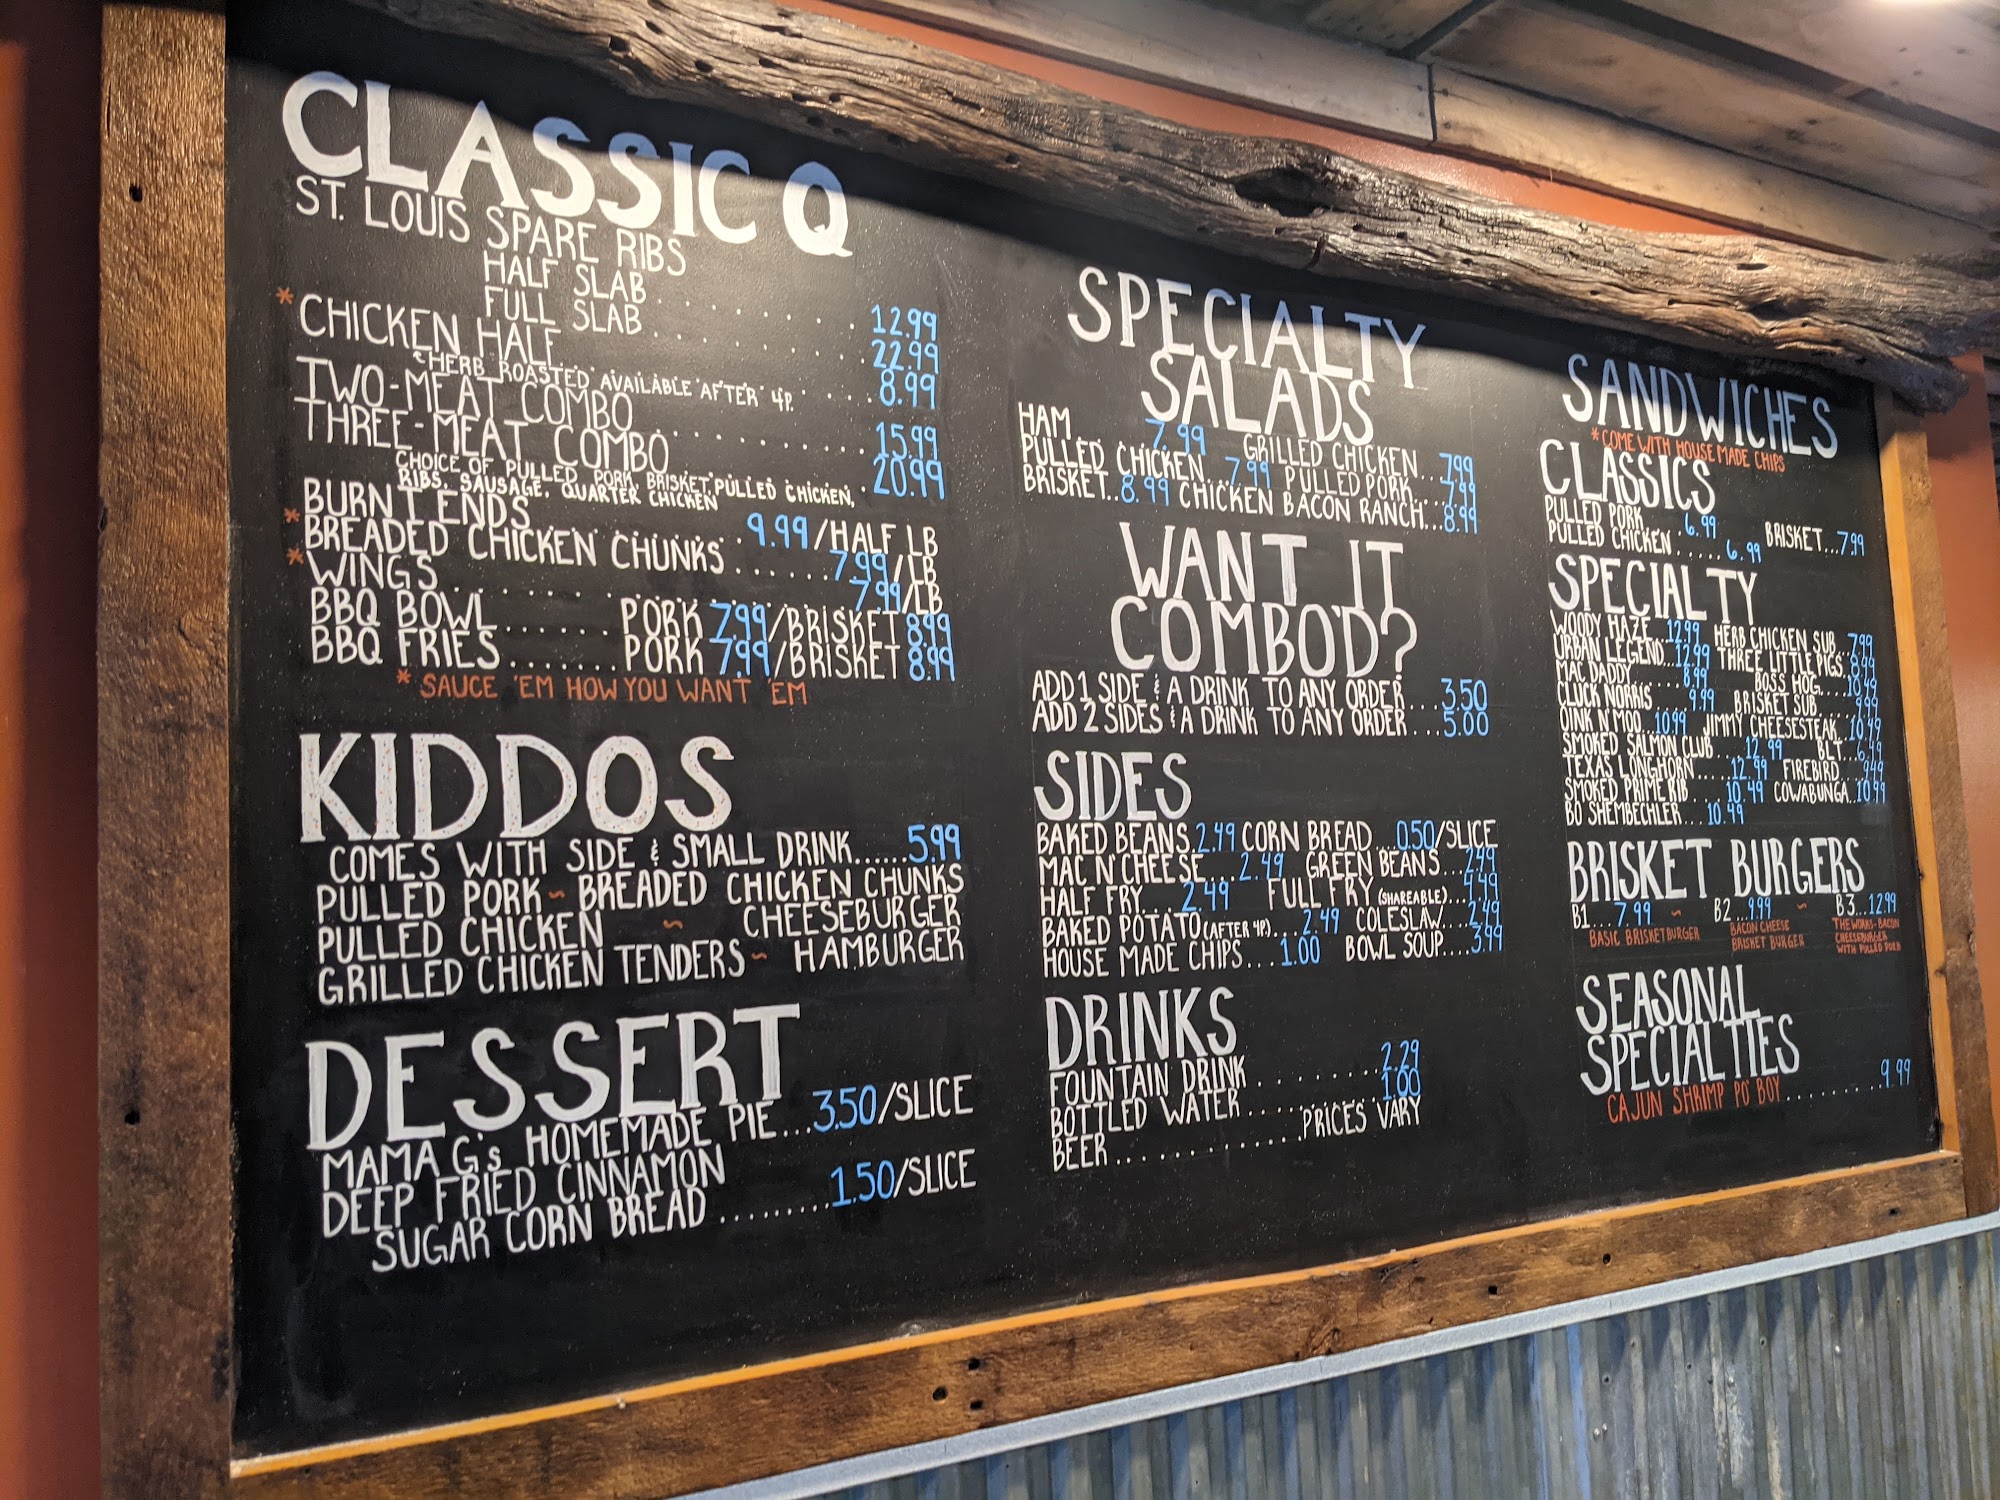 CLASSIC Q
ST. LOUIS SPARE RIBS
HALF SLAB . . . . . . . . . . 12.99
FULL SLAB . . . . . . . . . . 22.99
* CHICKEN HALF . . . . . . . . . . 8.99
& HERB ROASTED AVAILABLE AFTER 4P.
TWO-MEAT COMBO . . . . . . . . 15.99
THREE-MEAT COMBO . . . . . . . . 20.99
CHOICE OF PULLED PORK, BRISKET, PULLED CHICKEN,
RIBS, SAUSAGE, QUARTER CHICKEN
BURNT ENDS . . . . . . . . 9.99/HALF LB
* BREADED CHICKEN CHUNKS . . . . . . 7.99/LB
* WINGS . . . . . . . . . . . . 7.99/LB
BBQ BOWL . . . . . . PORK 7.99/BRISKET 8.99
BBQ FRIES . . . . . . . PORK 7.99/BRISKET 8.99
* SAUCE 'EM HOW YOU WANT 'EM
KIDDOS
COMES WITH SIDE & SMALL DRINK......5.99
PULLED PORK ~ BREADED CHICKEN CHUNKS
PULLED CHICKEN ~ CHEESEBURGER
GRILLED CHICKEN TENDERS ~ HAMBURGER
DESSERT
MAMA G's HOMEMADE PIE...3.50/SLICE
DEEP FRIED CINNAMON
SUGAR CORN BREAD .........1.50/SLICE
SPECIALTY
SALADS
HAM . . . . 7.99 GRILLED CHICKEN...7.99
PULLED CHICKEN...7.99 PULLED PORK....7.99
BRISKET..8.99 CHICKEN BACON RANCH...8.99
WANT IT
COMBO'D?
ADD 1 SIDE & A DRINK TO ANY ORDER....3.50
ADD 2 SIDES & A DRINK TO ANY ORDER...5.00
SIDES
BAKED BEANS.2.49 CORN BREAD...0.50/SLICE
MAC N' CHEESE...2.49 GREEN BEANS...2.49
HALF FRY....2.49 FULL FRY (SHAREABLE)...4.49
BAKED POTATO (AFTER 4P.)...2.49 COLESLAW...2.49
HOUSE MADE CHIPS...1.00 BOWL SOUP....3.99
DRINKS
FOUNTAIN DRINK . . . . . . . . 2.29
BOTTLED WATER . . . . . . . . . . 1.00
BEER . . . . . . . . . . . . PRICES VARY
SANDWICHES
* COME WITH HOUSE MADE CHIPS
CLASSICS
PULLED PORK . . . 6.99 BRISKET...7.99
PULLED CHICKEN . . . . . 6.99
SPECIALTY
WOODY HAZE...12.99 HERB CHICKEN SUB...7.99
URBAN LEGEND...12.99 THREE LITTLE PIGS.8.99
MAC DADDY........8.99 BOSS HOG....10.49
CLUCK NORRIS.....9.99 BRISKET SUB....9.99
OINK N' MOO...10.99 JIMMY CHEESESTEAK..10.49
SMOKED SALMON CLUB....12.99 BLT....6.49
TEXAS LONGHORN.....12.99 FIREBIRD....9.49
SMOKED PRIME RIB....10.49 COWABUNGA..10.99
BO SHEMBECHLER...10.49
BRISKET BURGERS
B1....7.99 ~ B2...9.99 ~ B3...12.99
BASIC BRISKET BURGER
BACON CHEESE
BRISKET BURGER
THE WORKS-BACON
CHEESEBURGER
WITH PULLED PORK
SEASONAL
SPECIALTIES
CAJUN SHRIMP PO' BOY . . . . . . . . . 9.99